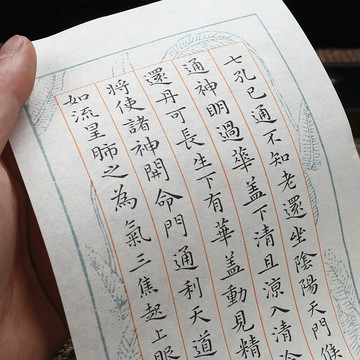 七孔已通不知老還坐陰陽天門候
通神明過華盖下清且涼入清
還丹可長生下有華盖動見精
將使諸神開命門通利天道
如流星肺之為氣三焦起上服